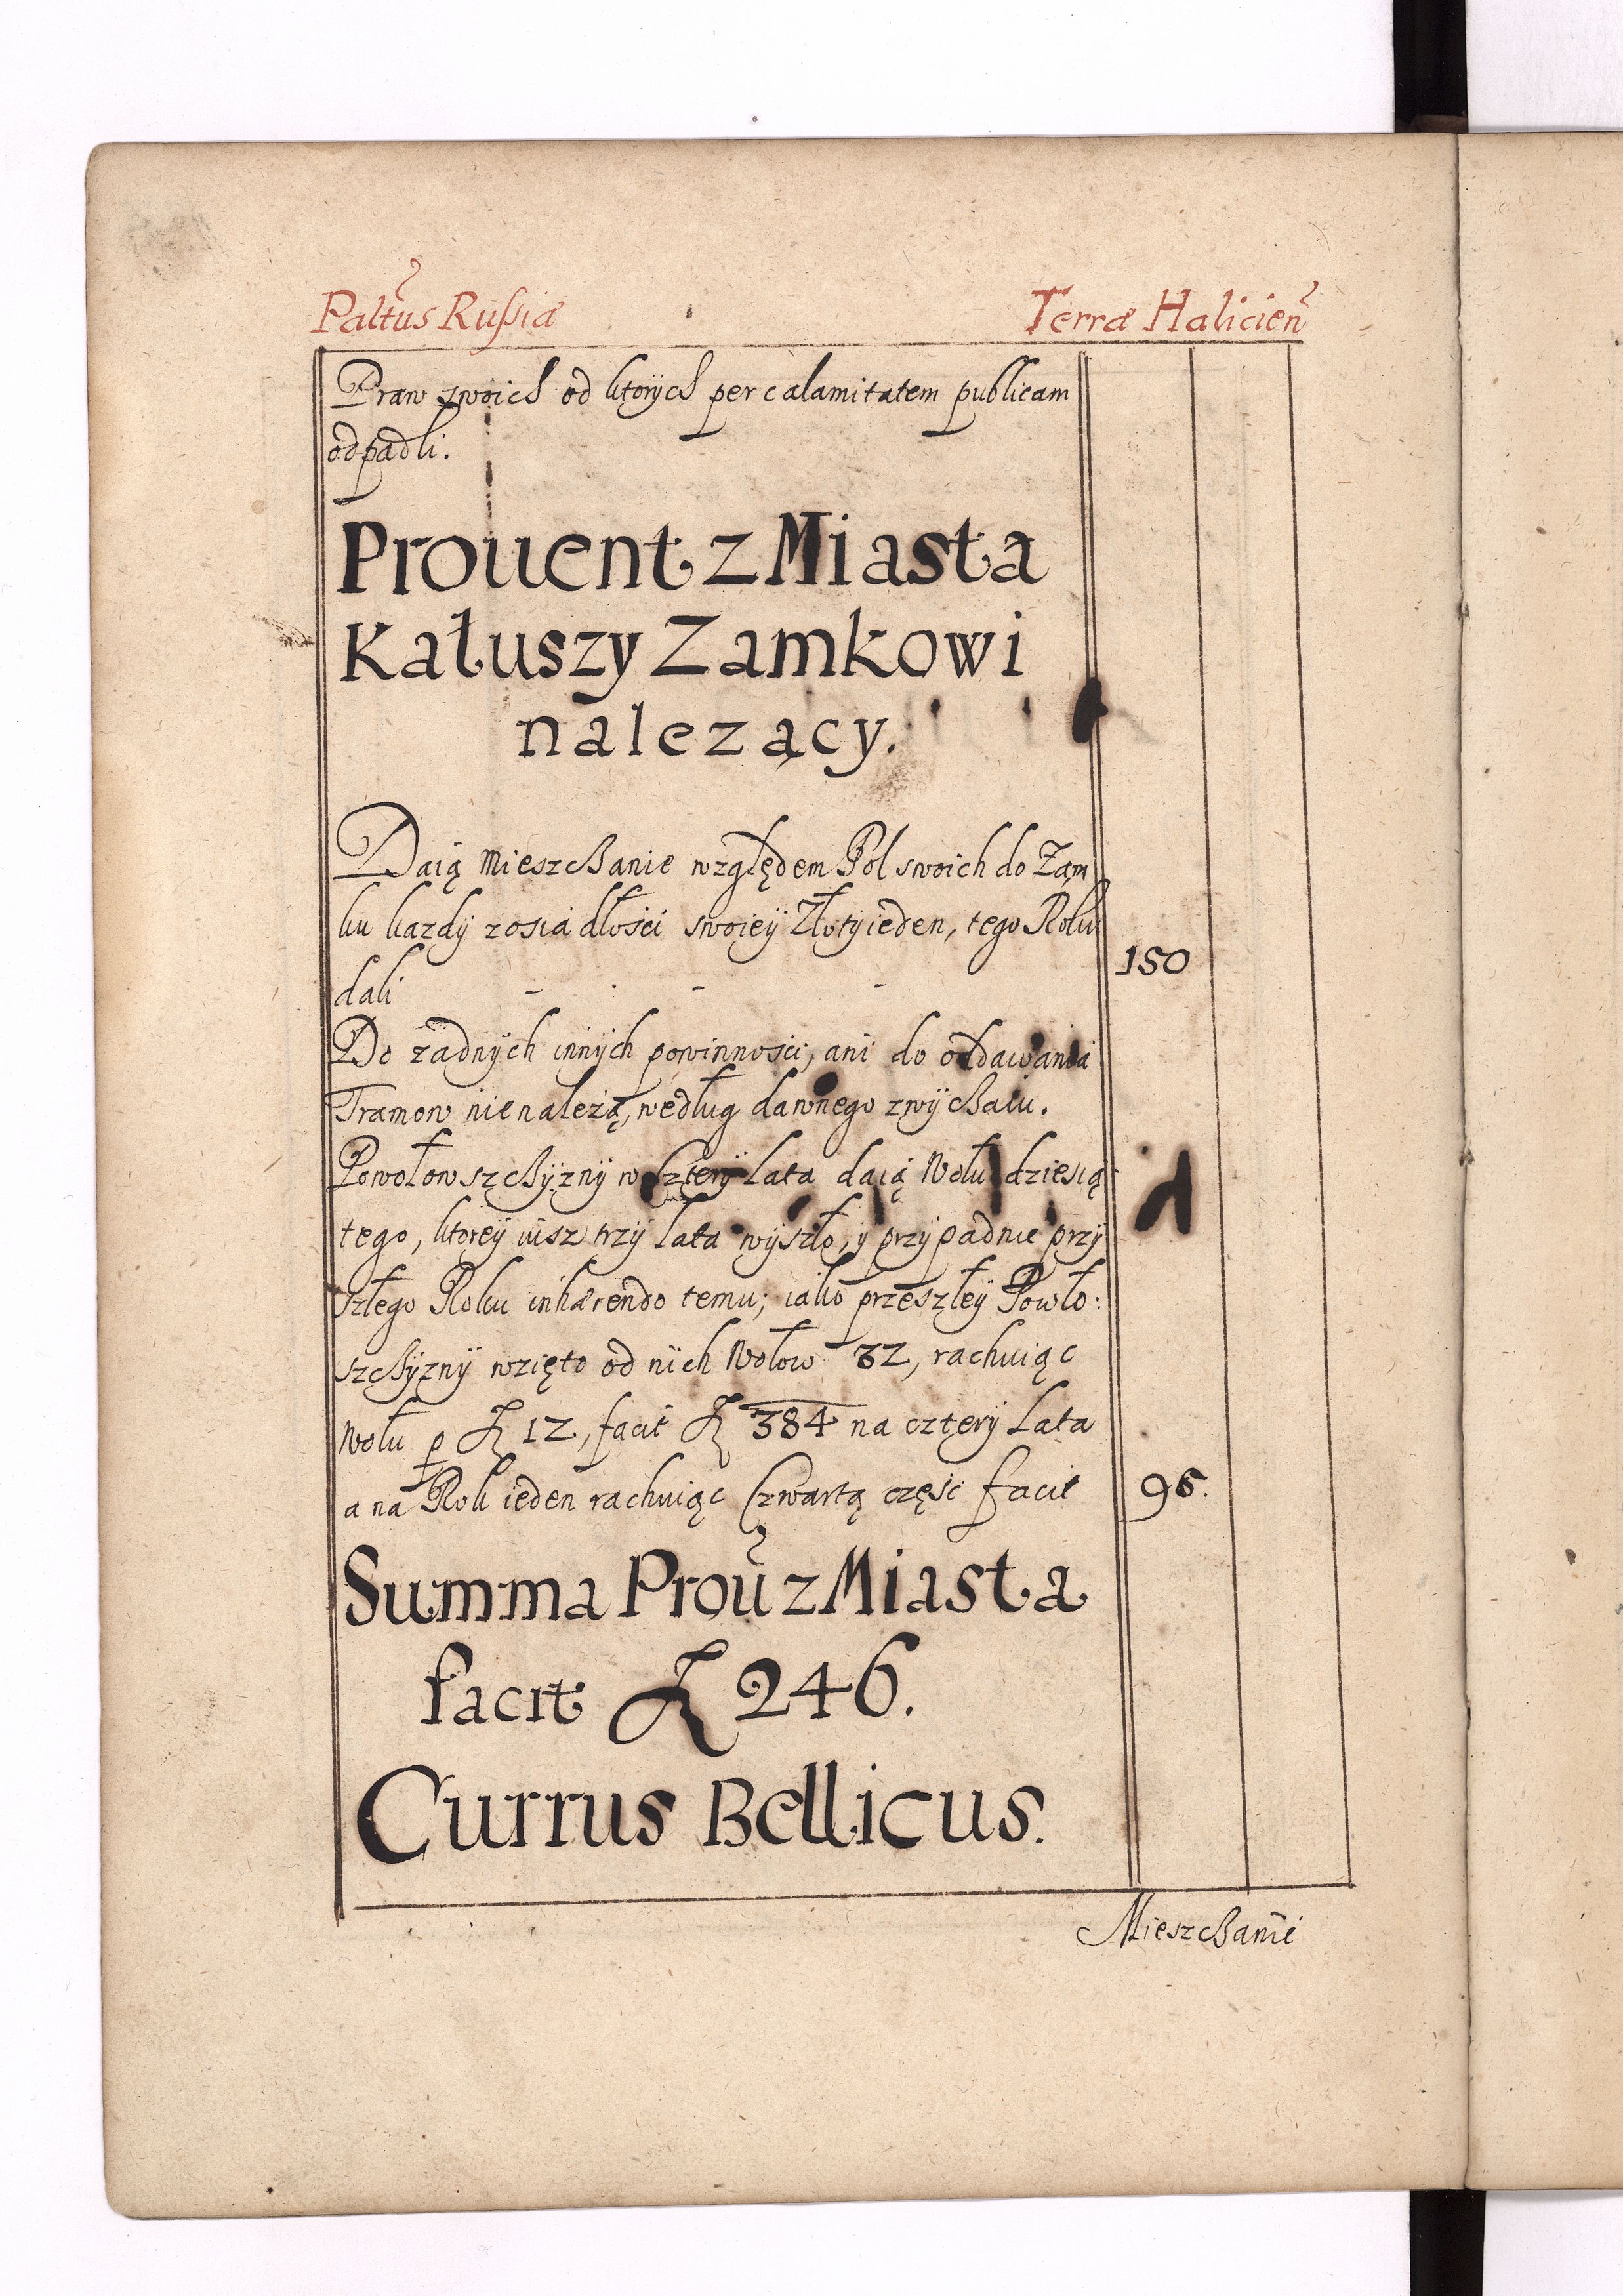 Paltus Russiæ Terræ Halicien
Praw swoich od ktorych per calamitatem publicam
odpadli.
Prouent z Miasta
Kałuszy Zamkowi
nalezący.
Daią Mieszczanie względem Pol swoich do Zam
ku kazdy z osiadłości swoiey Złoty ieden, tego Roku
dali - - - 150
Do żadnych innych powinności, ani do oddawania
Tramow nie należą, według dawnego zwyczaiu.
Powołowszczyzny w cztery Lata daią Wołu dziesią
tego, ktorey iusz trzy Lata wyszło, y przypadnie przy
szłego Roku inhærendo temu; iako przeszłey Powło:
szczyzny wzięto od nich Wołow 32, rachuiąc
Wołu p Zł 12, facit Zł 384 na cztery Lata
a na Rok ieden rachuiąc Czwartą część facit 96.
Summa Prou z Miasta
facit Zł 246.
Currus Bellicus.
Mieszczanie